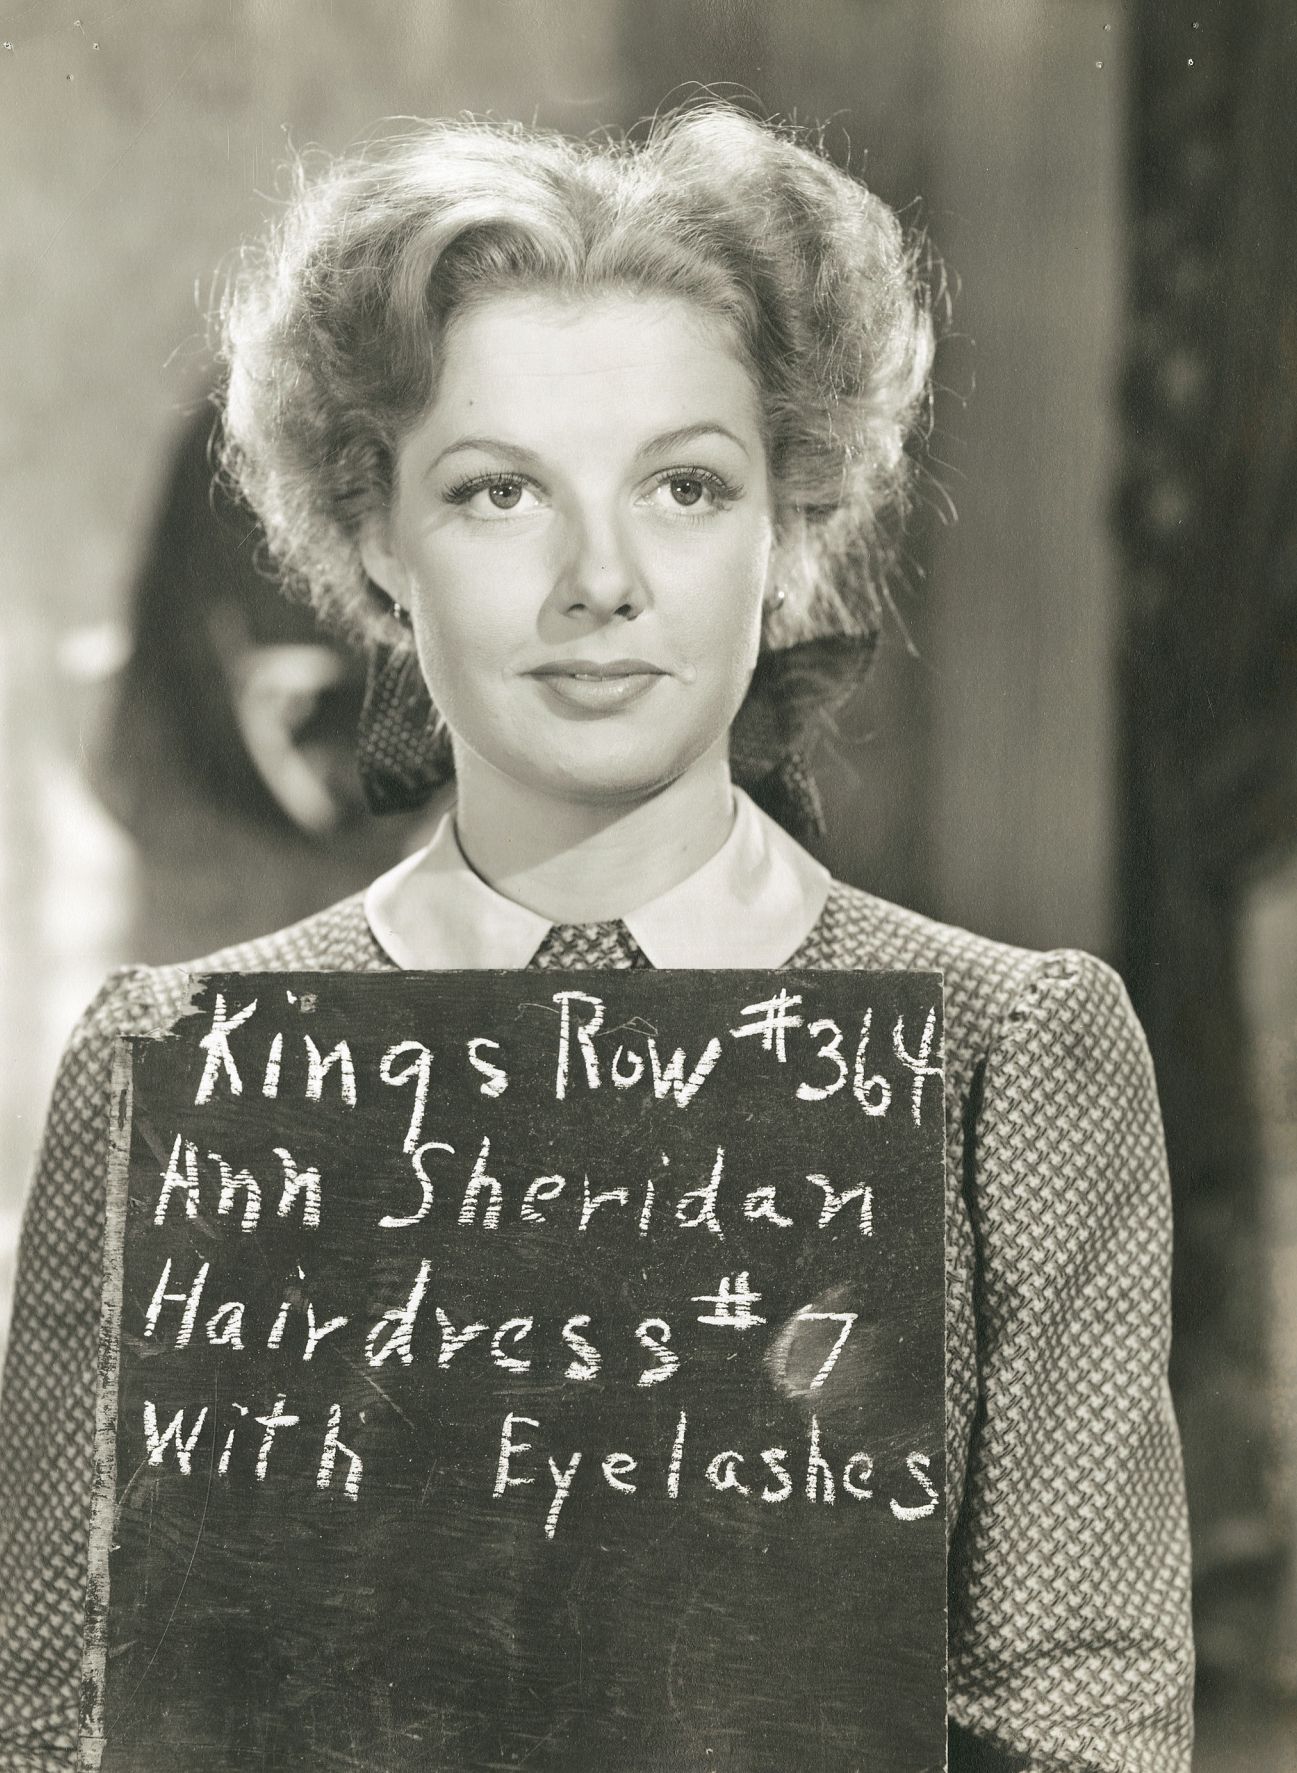 Kings Row #364
Ann Sheridan
Hairdress #7
With Eyelashes